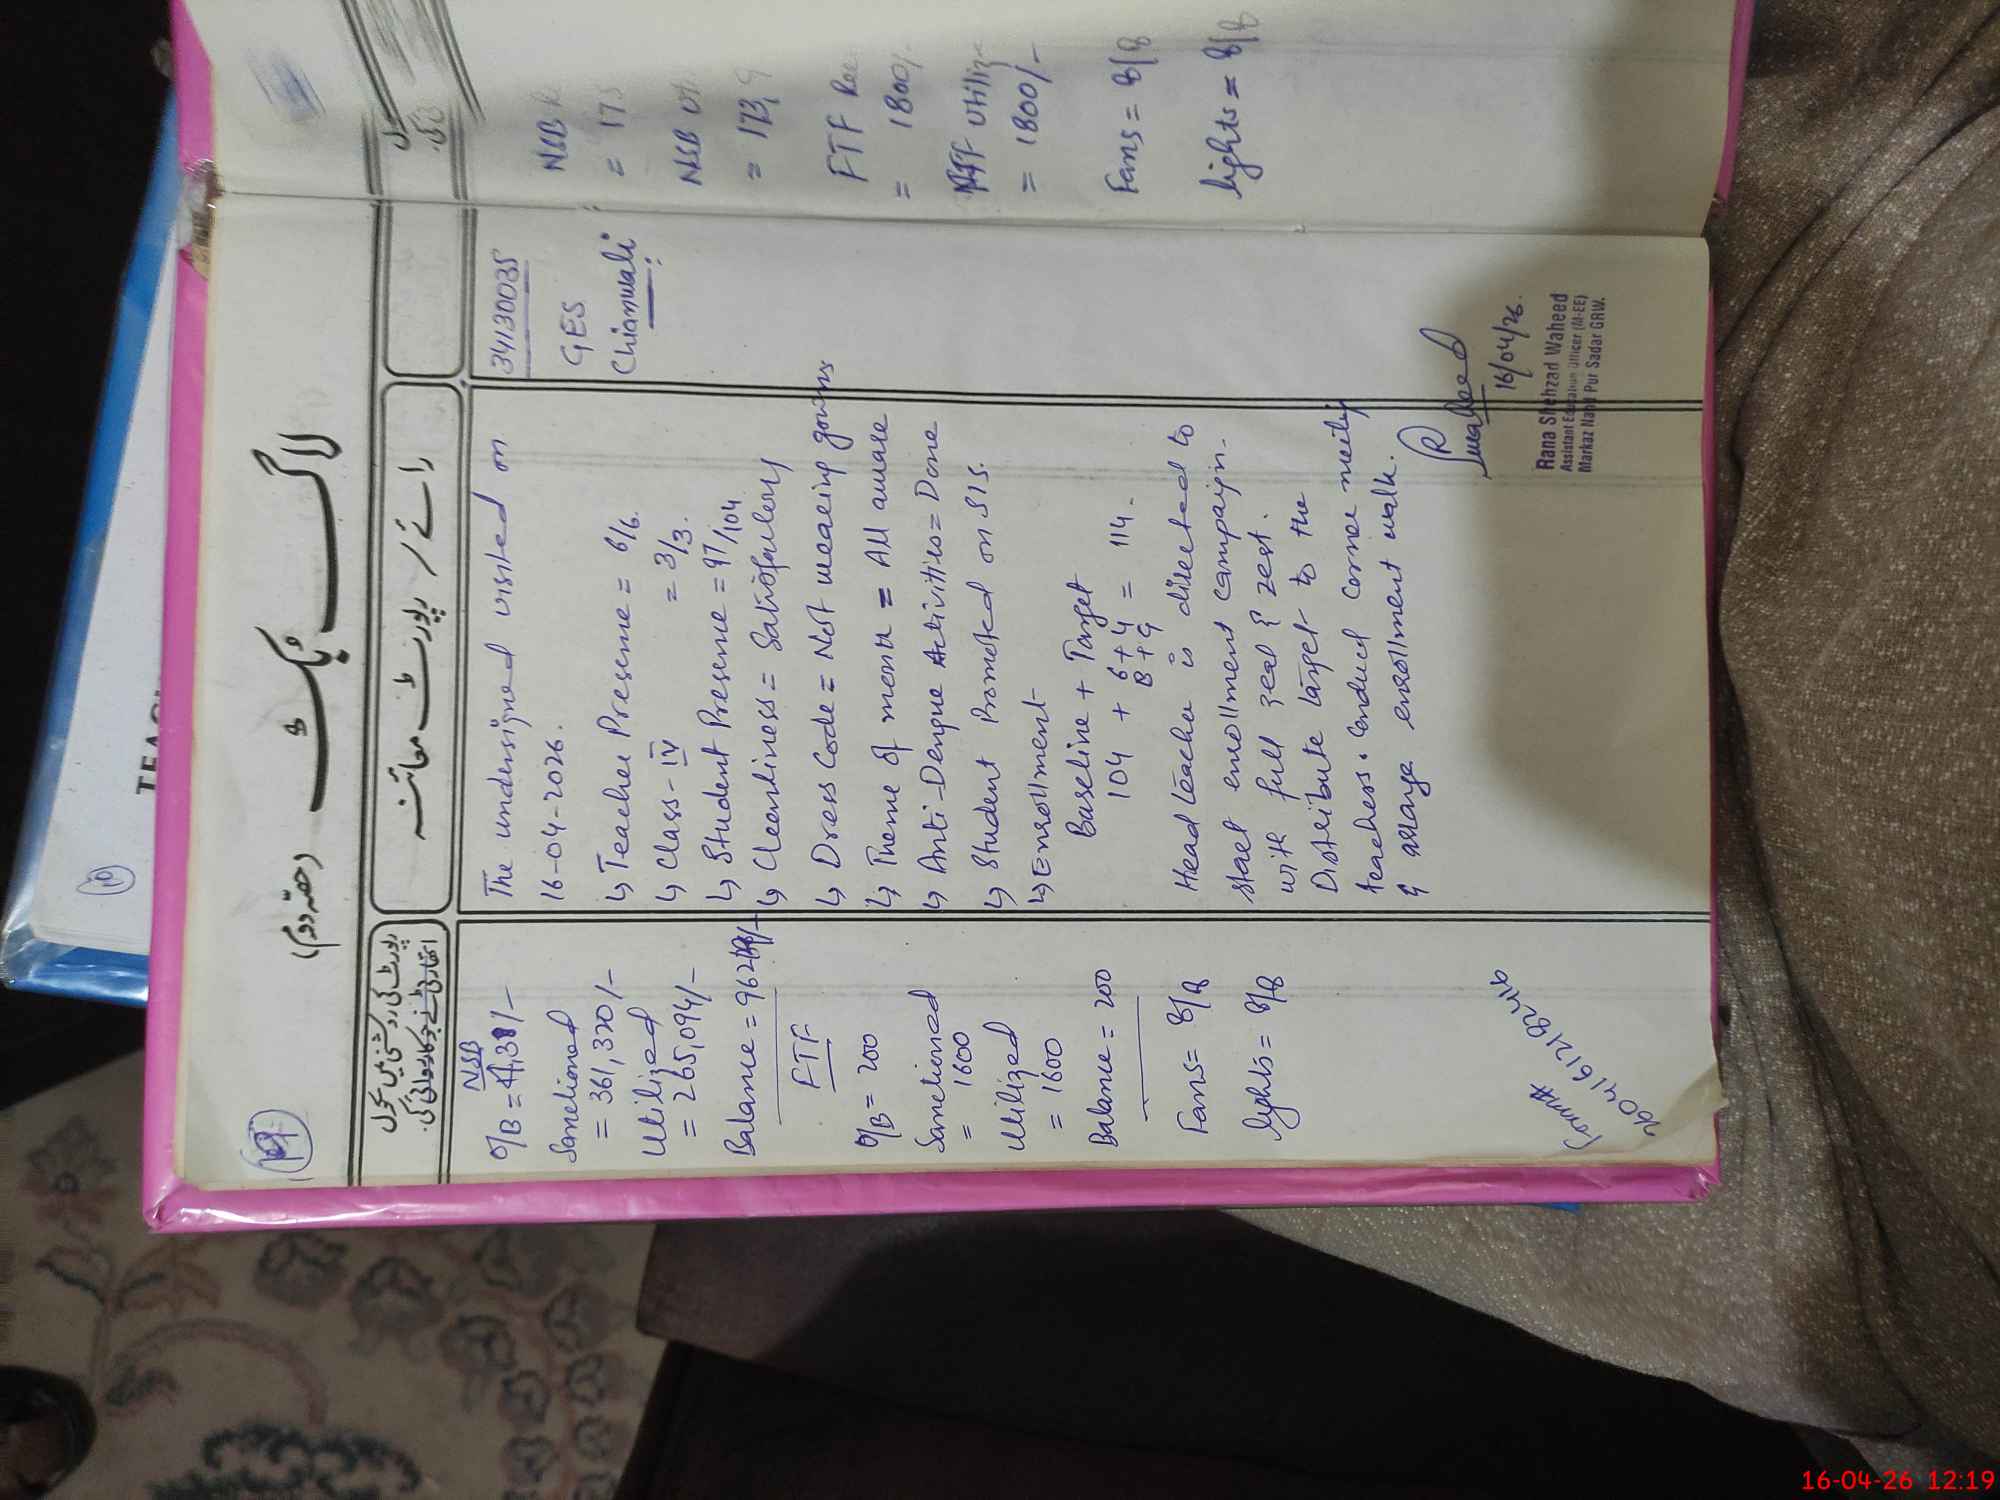 لاگ بک (حصّہ دوم)
رائے / رپورٹ معائنہ
رپورٹ کی روشنی میں سکول
اتھارٹی نے جو کاروائی کی.
34130035
GES
Chianwali
The undersigned visited on
16-04-2026.
↳ Teacher Presence = 6/6.
↳ Class - IV = 3/3.
↳ Student Presence = 97/104
↳ Cleanliness = Satisfactory
↳ Dress Code = Not wearing gowns
↳ Theme of month = All aware
↳ Anti-Dengue Activities = Done
↳ Student Promoted on SIS.
↳ Enrollment
Baseline + Target
104 + 6+4 = 114.
Head teacher is directed to
start enrollment campaign.
with full zeal & zest.
Distribute target to the
teachers. Conduct corner meeting
& arrange enrollment walk.
RWaheed
16/04/26.
Rana Shehzad Waheed
Assistant Education Officer (M-EE)
Markaz Nahi Pur Sadar GRW.
NSB
O/B =
Sanctioned
= 361,320/-
Utilized
= 265,094/-
Balance =
FTF
O/B = 200
Sanctioned
= 1600
Utilized
= 1600
Balance = 200
Fans = 8/8
lights = 8/8
NSB
= 175
NSB Uti
= 173,9
FTF Rec
= 1800/-
FTF Utiliz
= 1800/-
Fans = 8/8
lights = 8/8
10
16-04-26 12:19